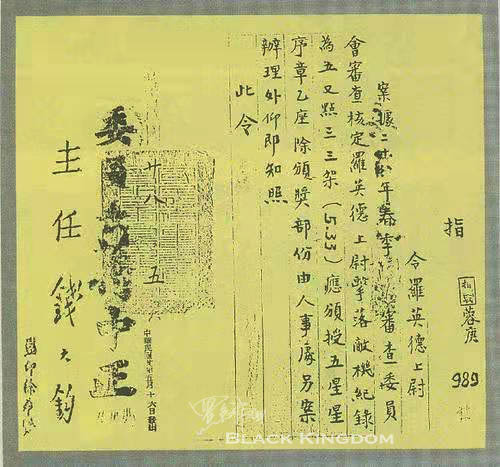 指
蓉庚 989
令羅英德上尉
案據二 年 季 審查委員
會審查核定羅英德上尉擊落敵機紀錄
為五又點三三架(5.33)應頒授五星星
序章乙座除頒獎部份由人事處另案
辦理外仰即知照
此令
廿八 五
中華民國 年五月十六日發出
委員 中正
主任錢大鈞
監印徐
BLACK KINGDOM